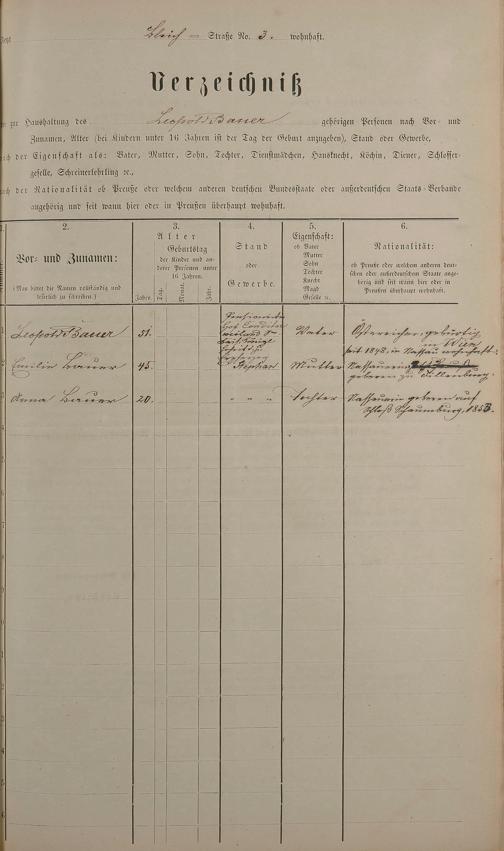 Bleich = Straße No. 3. wohnhaft.
Verzeichniß
zur Haushaltung des Leopold Bauer gehörigen Personen nach Vor- und
Zunamen, Alter (bei Kindern unter 16 Jahren ist der Tag der Geburt anzugeben), Stand oder Gewerbe,
der Eigenschaft als: Vater, Mutter, Sohn, Tochter, Dienstmädchen, Hausknecht, Köchin, Diener, Schlosser-
geselle, Schreinerlehrling ꝛc.,
der Nationalität ob Preuße oder welchem anderen deutschen Bundesstaate oder außerdeutschen Staats-Verbande
angehörig und seit wann hier oder in Preußen überhaupt wohnhaft.
2.
Vor- und Zunamen:
(Man bittet die Namen vollständig und
leserlich zu schreiben.)
3.
Alter
Geburtstag
der Kinder und an-
derer Personen unter
16 Jahren.
Jahre.
Tag.
Monat.
Jahr.
4.
Stand
oder
Gewerbe.
5.
Eigenschaft:
ob Vater
Mutter
Sohn
Tochter
Knecht
Magd
Geselle ꝛc.
6.
Nationalität:
ob Preuße oder welchem anderen deut-
schen oder außerdeutschen Staate ange-
hörig und seit wann hier oder in
Preußen überhaupt wohnhaft.
Leopold Bauer 51. Vater Österreicher, gebürtig
in Wien
seit 1848, in Nassau wohnhaft.
Stephan
Emilie Bauer 45. Mutter Nassauerin
geboren zu Dillenburg.
Anna Bauer 20. " " " Tochter Nassauerin geboren auf
Schloß Schaumburg, 1853.